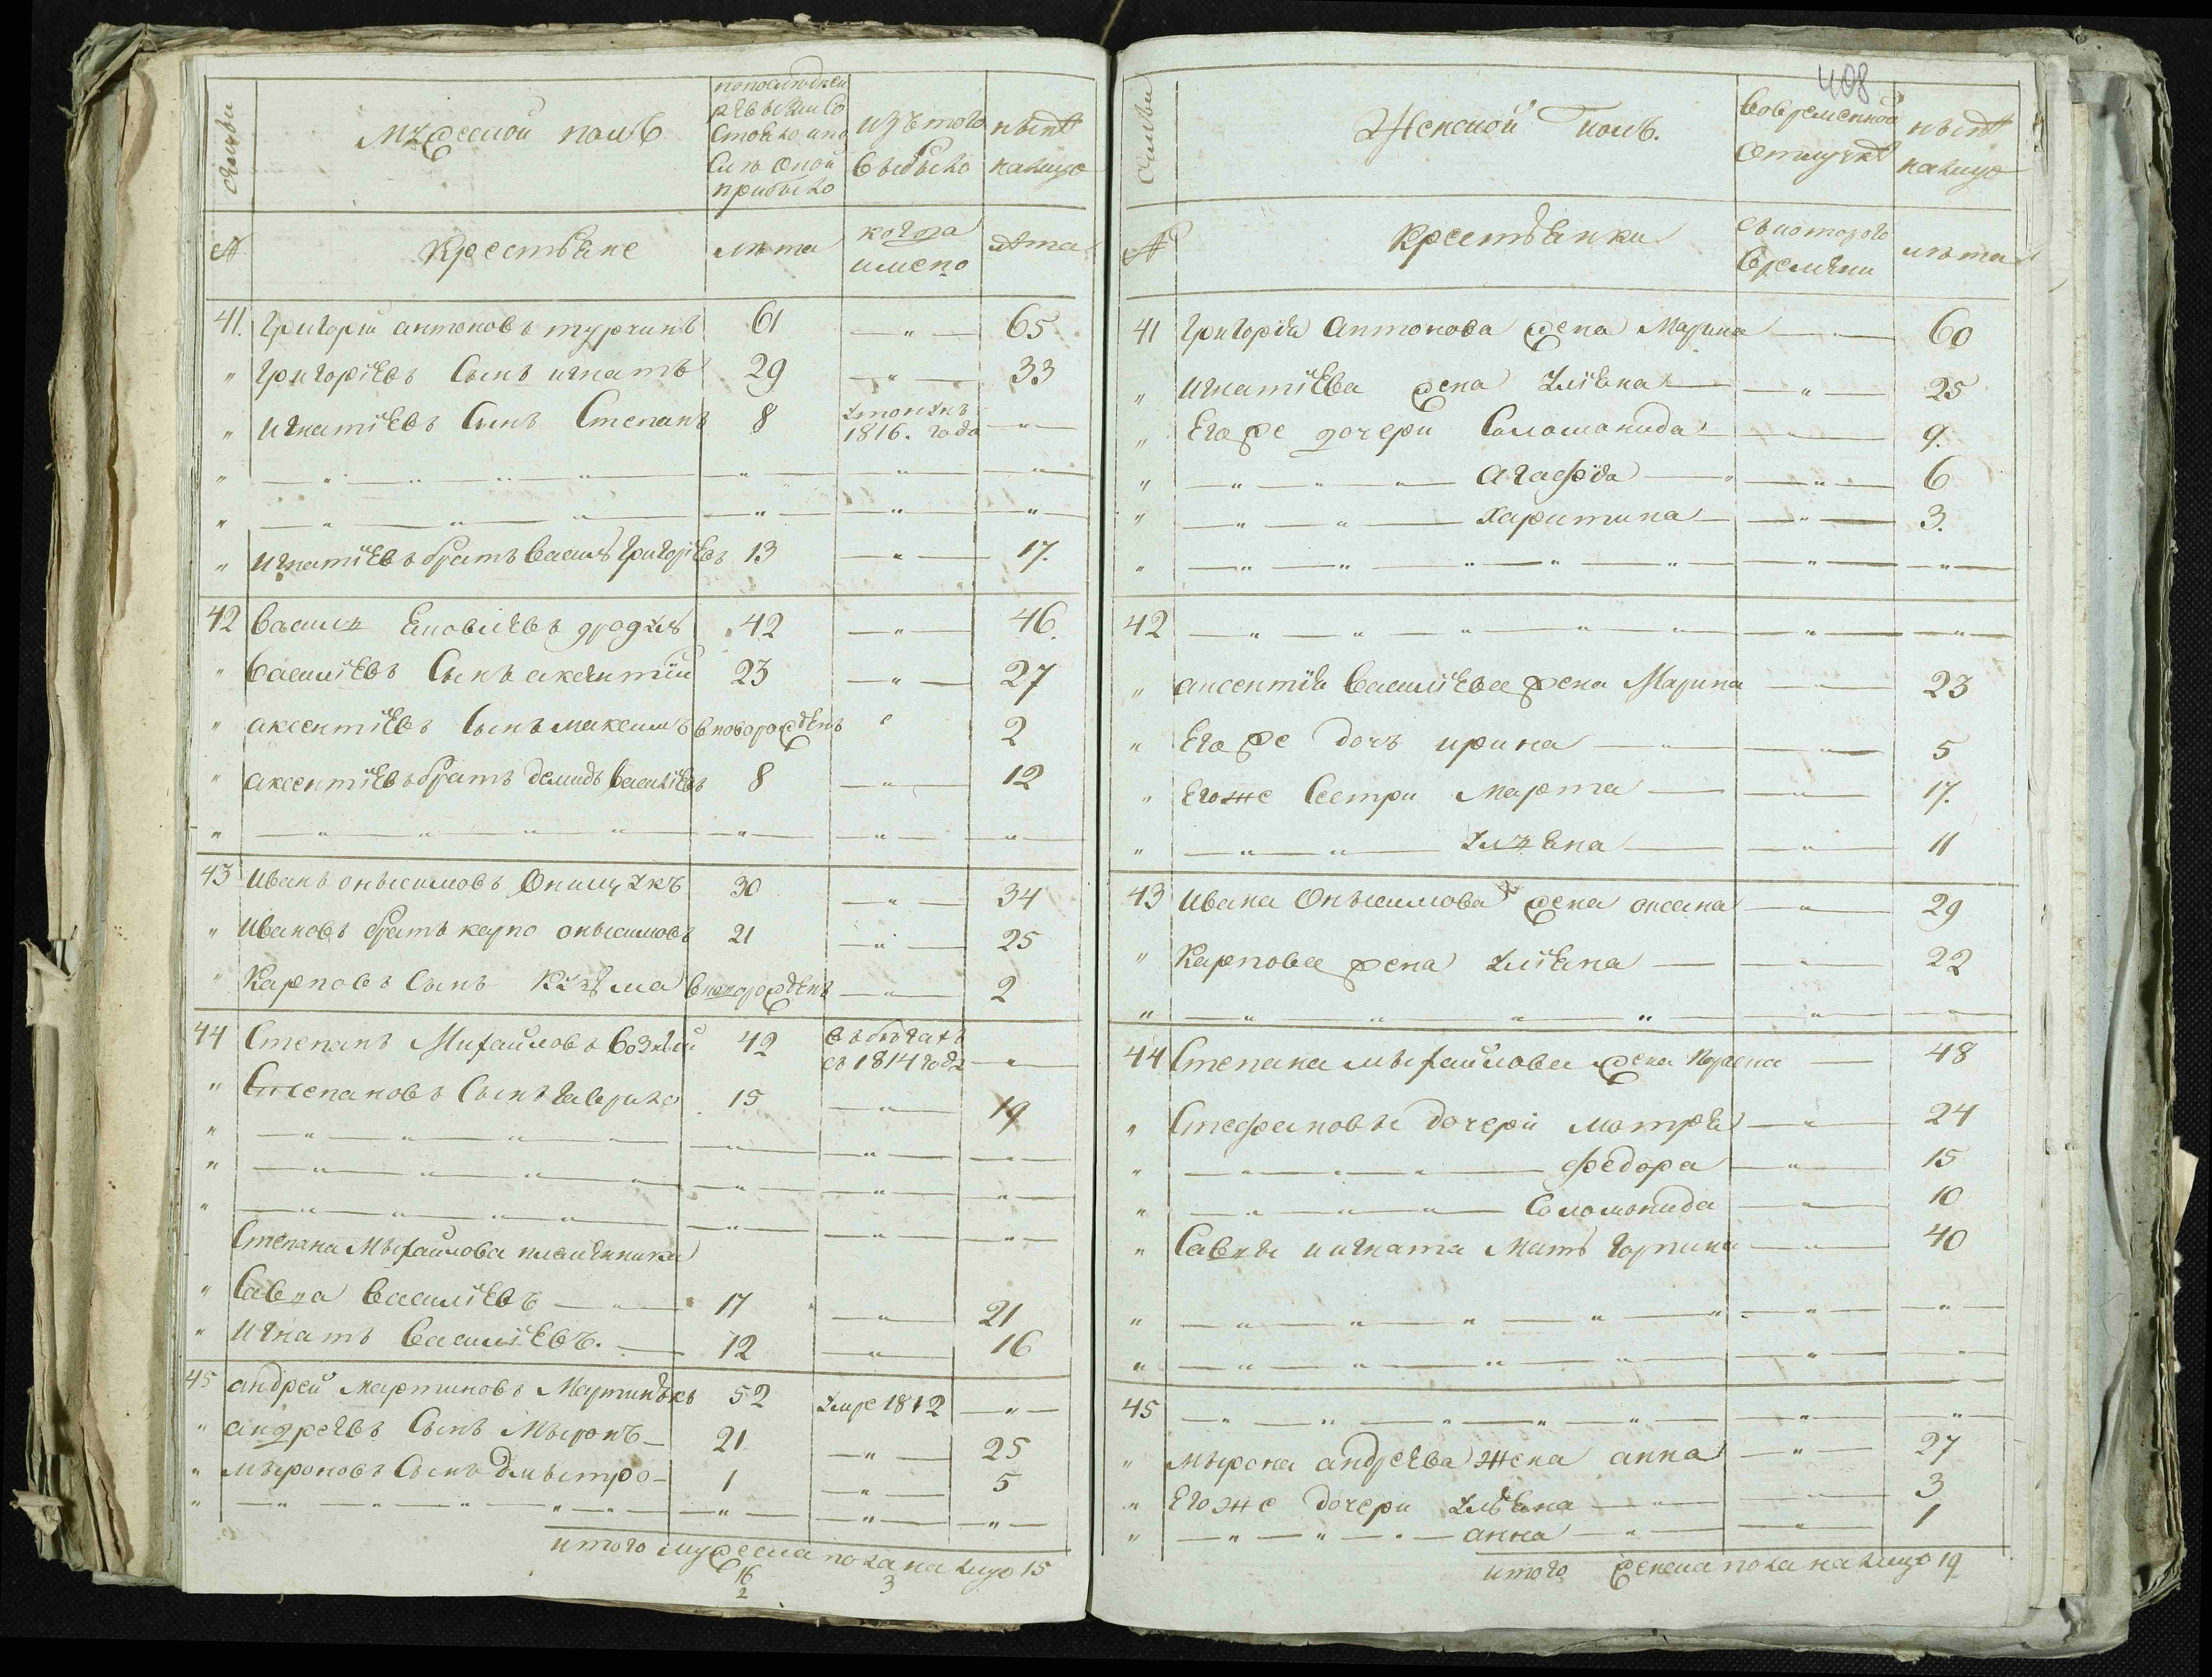 семьи
мужеской полъ
попоследней
ревизии со
стояло ипо
слъ оной
прибыло
изъ того
выбыло
нынѣ
налицо
№
Крестьяне
лѣта
когда
имено
лѣта
41. Григорий антоновъ турчинъ 61 — " — 65
" Григориевъ Сынъ игнатъ 29 — " — 33
" Игнатиевъ Сынъ Степанъ 8
1816. года — " —
" — " — " — " — " — " — " — " —
" — " — " — " — " — " — " —
" Игнатиевъ братъ василь Григориевъ 13 — " — 17.
42 василь Яковлевъ 42 — " — 46.
" василиевъ Сынъ аксентий 23 — " — 27
" аксентиевъ Сынъ максимъ вноворожденъ " 2
" аксентиевъ братъ демидъ василиевъ 8 — " — 12
" — " — " — " — " — " — " — " —
43 Иванъ онысимовъ 30 — " — 34
" Ивановъ братъ карпо онысимовъ 21 — " — 25
" Карповъ Сынъ Кузьма вноворожденъ — " — 2
44 Степанъ Михайловъ 42 въ бегахъ
съ 1814 году — " —
" Степановъ Сынъ гаврило 15 — " — 19
" — " — " — " — " — " — " —
" — " — " — " — " — " — " —
" — " — " — " — " — " — " —
Степана Мыхайлова племянники
" Савка василиевъ — " — 17 — " — 21
" Игнатъ василиевъ. — 12 — " — 16
45 андрей мартиновъ 52 умре 1812 — " —
" андреевъ Сынъ Мыронъ — 21 — " — 25
" мыроновъ Сынъ дмытро — 1 — " — 5
" — " — " — " — " — " — " — " —
итого мужеска пола на лицо 15
16
2
3
408
семьи
Женской полъ.
вовременной
отлучкѣ
нынѣ
налицо
№
крестьянки
съ которого
времени
лѣта
41 Григория Антонова жена Марина — " — 60
" игнатиева жена улияна — " — 25
" Его же дочери Соломонида — " — 9.
" — " — " — " — агафия — " — " — 6
" — " — " — харитина — " — 3.
" — " — " — " — " — " — " — " —
42 — " — " — " — " — " — " — " —
" аксентия василиева жена Марина — " — 23
" Его же дочь ирина — " — " — 5
" Его же Сестри марта — " — 17.
" — " — " — ульяна — " — 11
43 ивана Онысимова жена оксана — " — 29
" Карпова жена улияна — " — 22
" — " — " — " — " — " — " —
44 Степана мыхайлова жена — 48
" Стефановы дочери мотря — " — 24
" — " — " — " — федора — " — 15
" — " — " — " — Соломонида — " — 10
" Савки и игната мать горпина — " — 40
" — " — " — " — " — " — " — " —
" — " — " — " — " — " — " —
45 — " — " — " — " — " — " — " —
" мырона андреева жена анна — " — 27
" Его же дочери ульяна — " — " — 3
" — " — " — " — анна — " — " — 1
итого женска пола на лицо 19